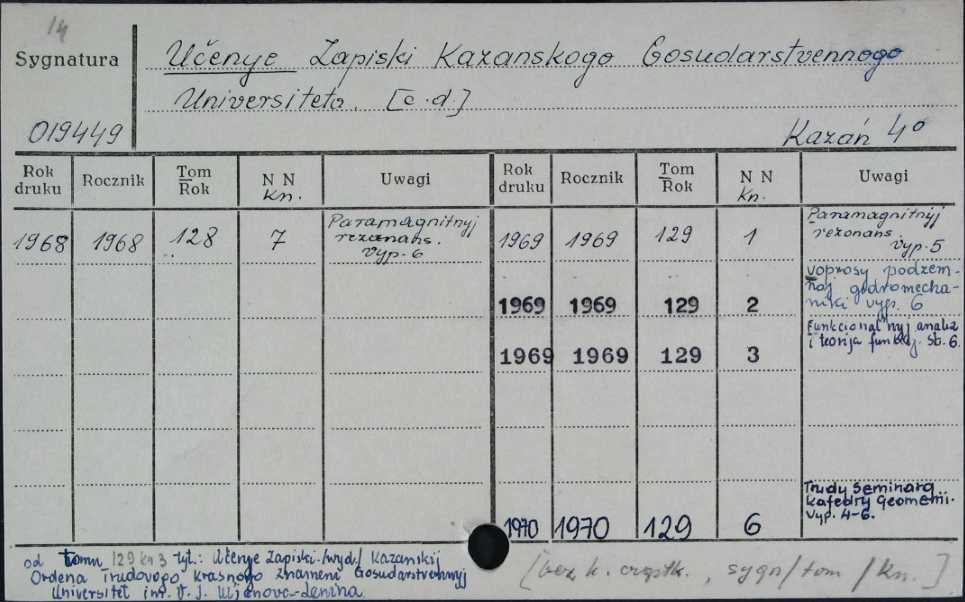 14
Sygnatura
Učenye Zapiski Kazanskogo Gosudarstvennogo
Universiteta. [c.d.]
019449
Kazań 4°
Rok druku Rocznik Tom Rok N N kn. Uwagi Rok druku Rocznik Tom Rok N N kn. Uwagi
1968 1968 128 7 Paramagnitnyj
rezonans.
vyp. 6
1969 1969 129 1 Paramagnitnyj
rezonans.
vyp. 5
1969 1969 129 2 Voprosy podzem-
noj gidromecha-
niki vyp. 6
1969 1969 129 3 Funkcional'nyj analiz
i teorija funkcj. Sb. 6.
1970 1970 129 6 Trudy Seminara
kafedry Geometrii.
Vyp. 4-6.
od tomu 129 kn 3 tyt.: Učenye Zapiski./wyd./ Kazanskij
Ordena Trudovogo Krasnogo Znameni Gosudarstvennyj
Universitet im. V. I. Uljanova-Lenina.
[bez k. cząstk., sygn/tom/kn.]